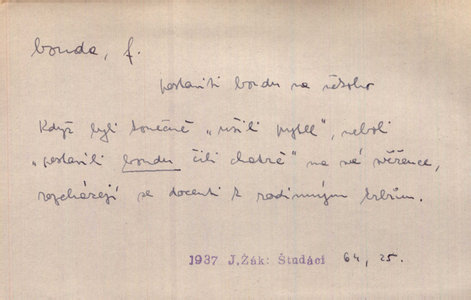 bouda, f.
postaviti boudu na někoho
Když byli konečně „ušili pytel", neboli
„postavili boudu čili chatrč" na své svěřence,
rozcházejí se docenti k rodinným krbům.
1937 J.Žák: Študáci 64, 25.